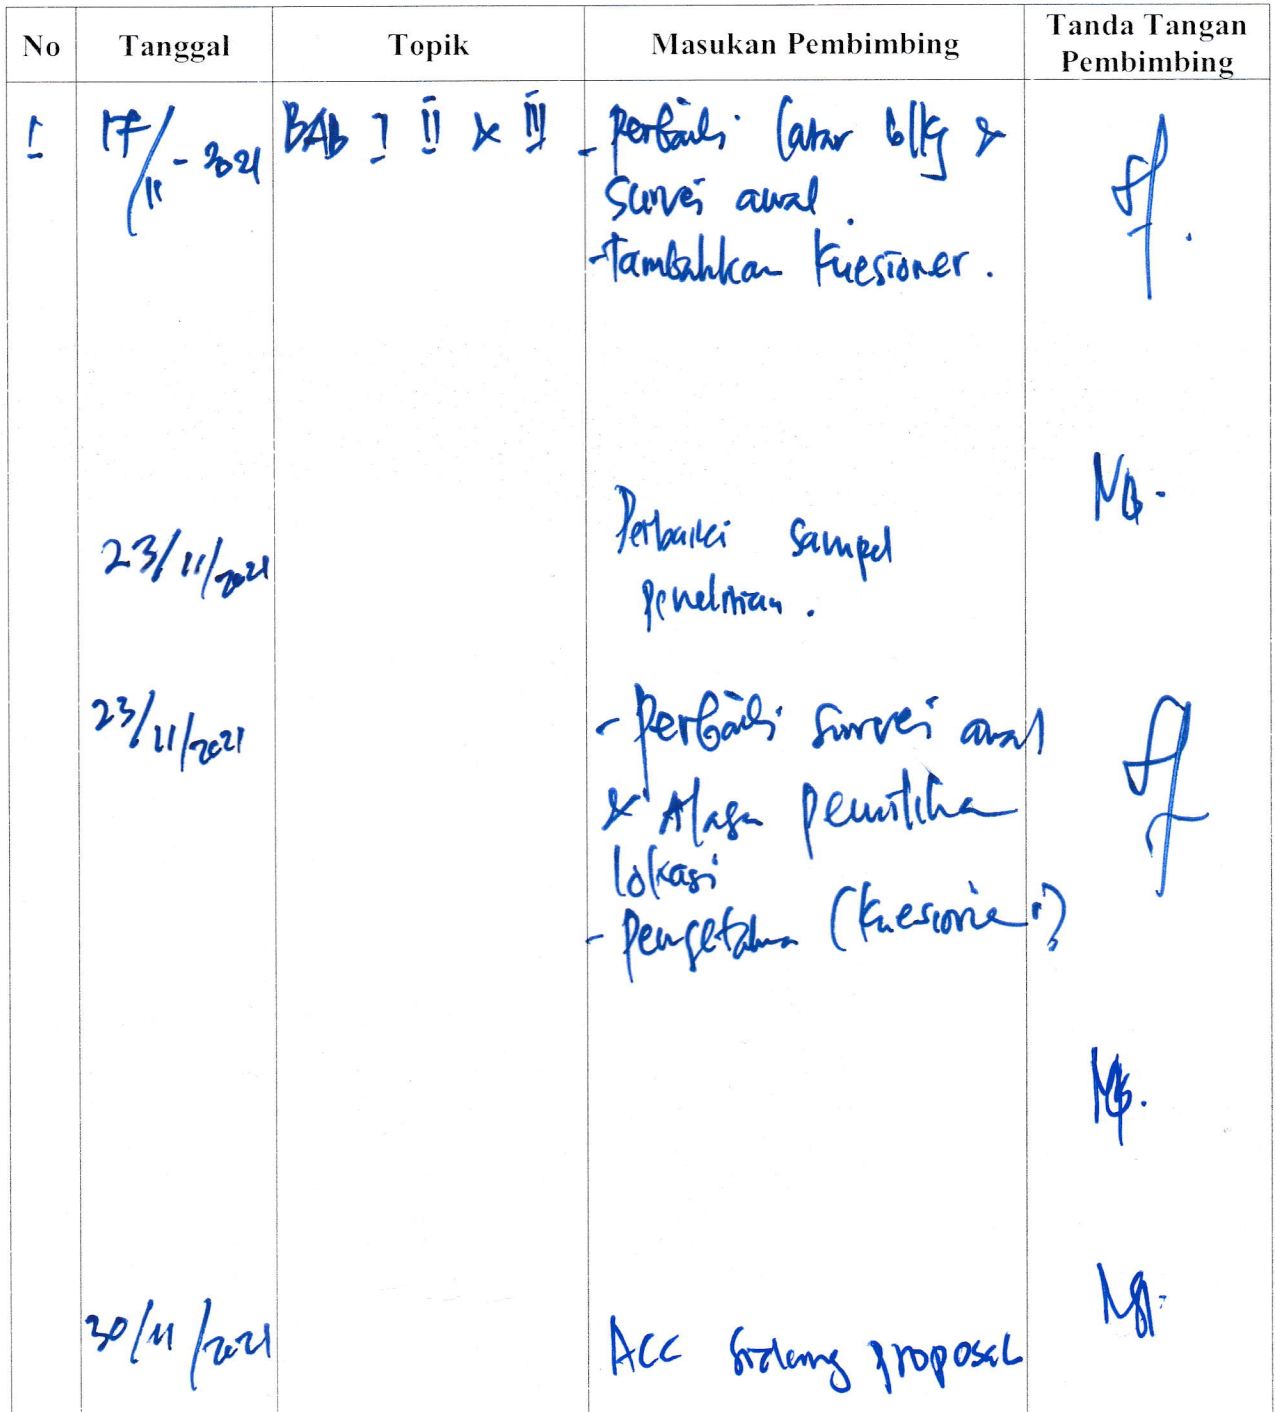 No Tanggal Topik Masukan Pembimbing Tanda Tangan Pembimbing
I 17/11-2021 BAB I II & III - perbaiki latar blkg &
survei awal.
- Tambahkan kuesioner.
23/11/2021 Perbaiki sampel
penelitian.
23/11/2021 - perbaiki survei awal
& Alasan pemilihan
lokasi
- pengetahuan (kuesioner)
30/11/2021 ACC sidang proposal